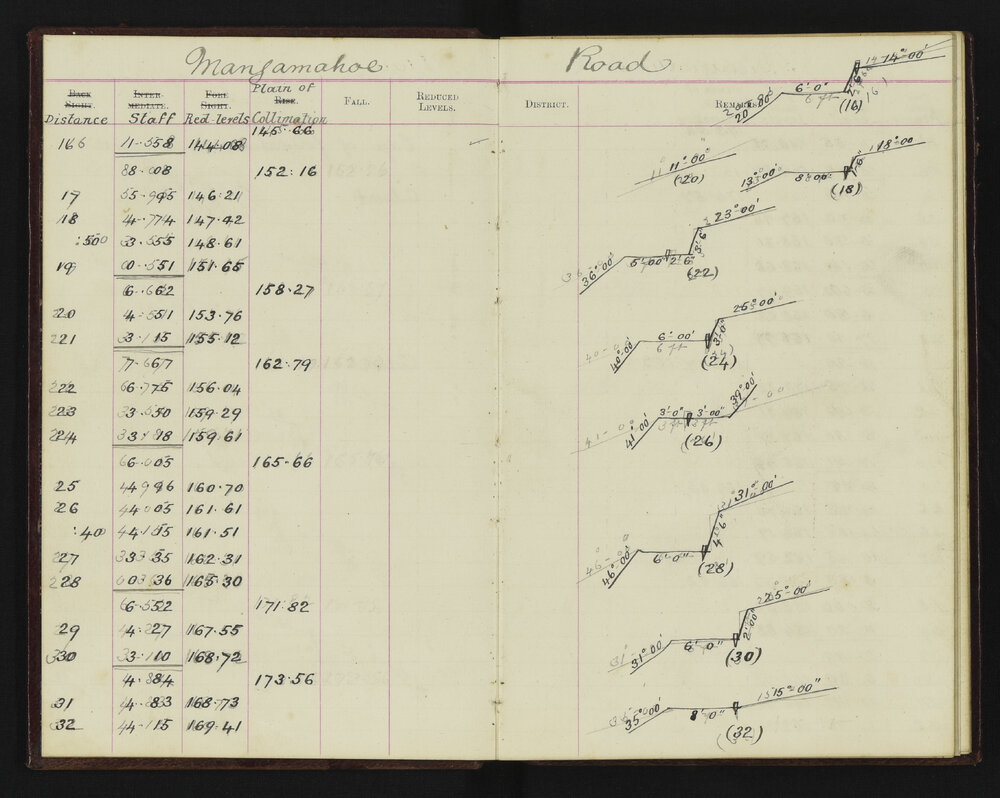 Mangamahoe Road
Back Sight. Inter-mediate. Fore Sight. Plain of Rise. Fall. Reduced Levels. District. Remarks.
Distance Staff Red-levels Collimation
145.66
16 1.58 144.08
8.08 152.16
17 5.95 146.21
18 4.74 147.42
.50 3.55 148.61
19 0.51 151.65
6.62 158.27
20 4.51 153.76
21 3.15 155.12
7.67 162.79
22 6.75 156.04
23 3.50 159.29
24 3.18 159.61
6.05 165.66
25 4.96 160.70
26 4.05 161.61
.40 4.15 161.51
27 3.35 162.31
28 0.36 165.30
6.52 171.82
29 4.27 167.55
30 3.10 168.72
4.84 173.56
31 4.83 168.73
32 4.15 169.41
20°·00' 6'·0" 14°·00'
6 ft
(16)
11°·00'
(20)
13°·00' 8'·00" 18°·00'
(18)
36°·00' 5'·00" 2'·6" 3'·6" 23°·00'
(22)
40°·00' 6'·00" 3'·0" 25°·00'
6 ft
(24)
41°·00' 3'·0" 3'·00" 39°·00'
3 ft 3 ft
(26)
46°·00' 6'·0" 4'·6" 31°·00'
(28)
31°·00' 6'·0" 2'·00" 25°·00'
(30)
35°·00' 8'·0" 15°·00"
(32)